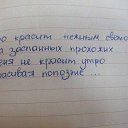 ро красит нежным светом
а заспанных прохожих
еня не красит утро
расивая попозже ...